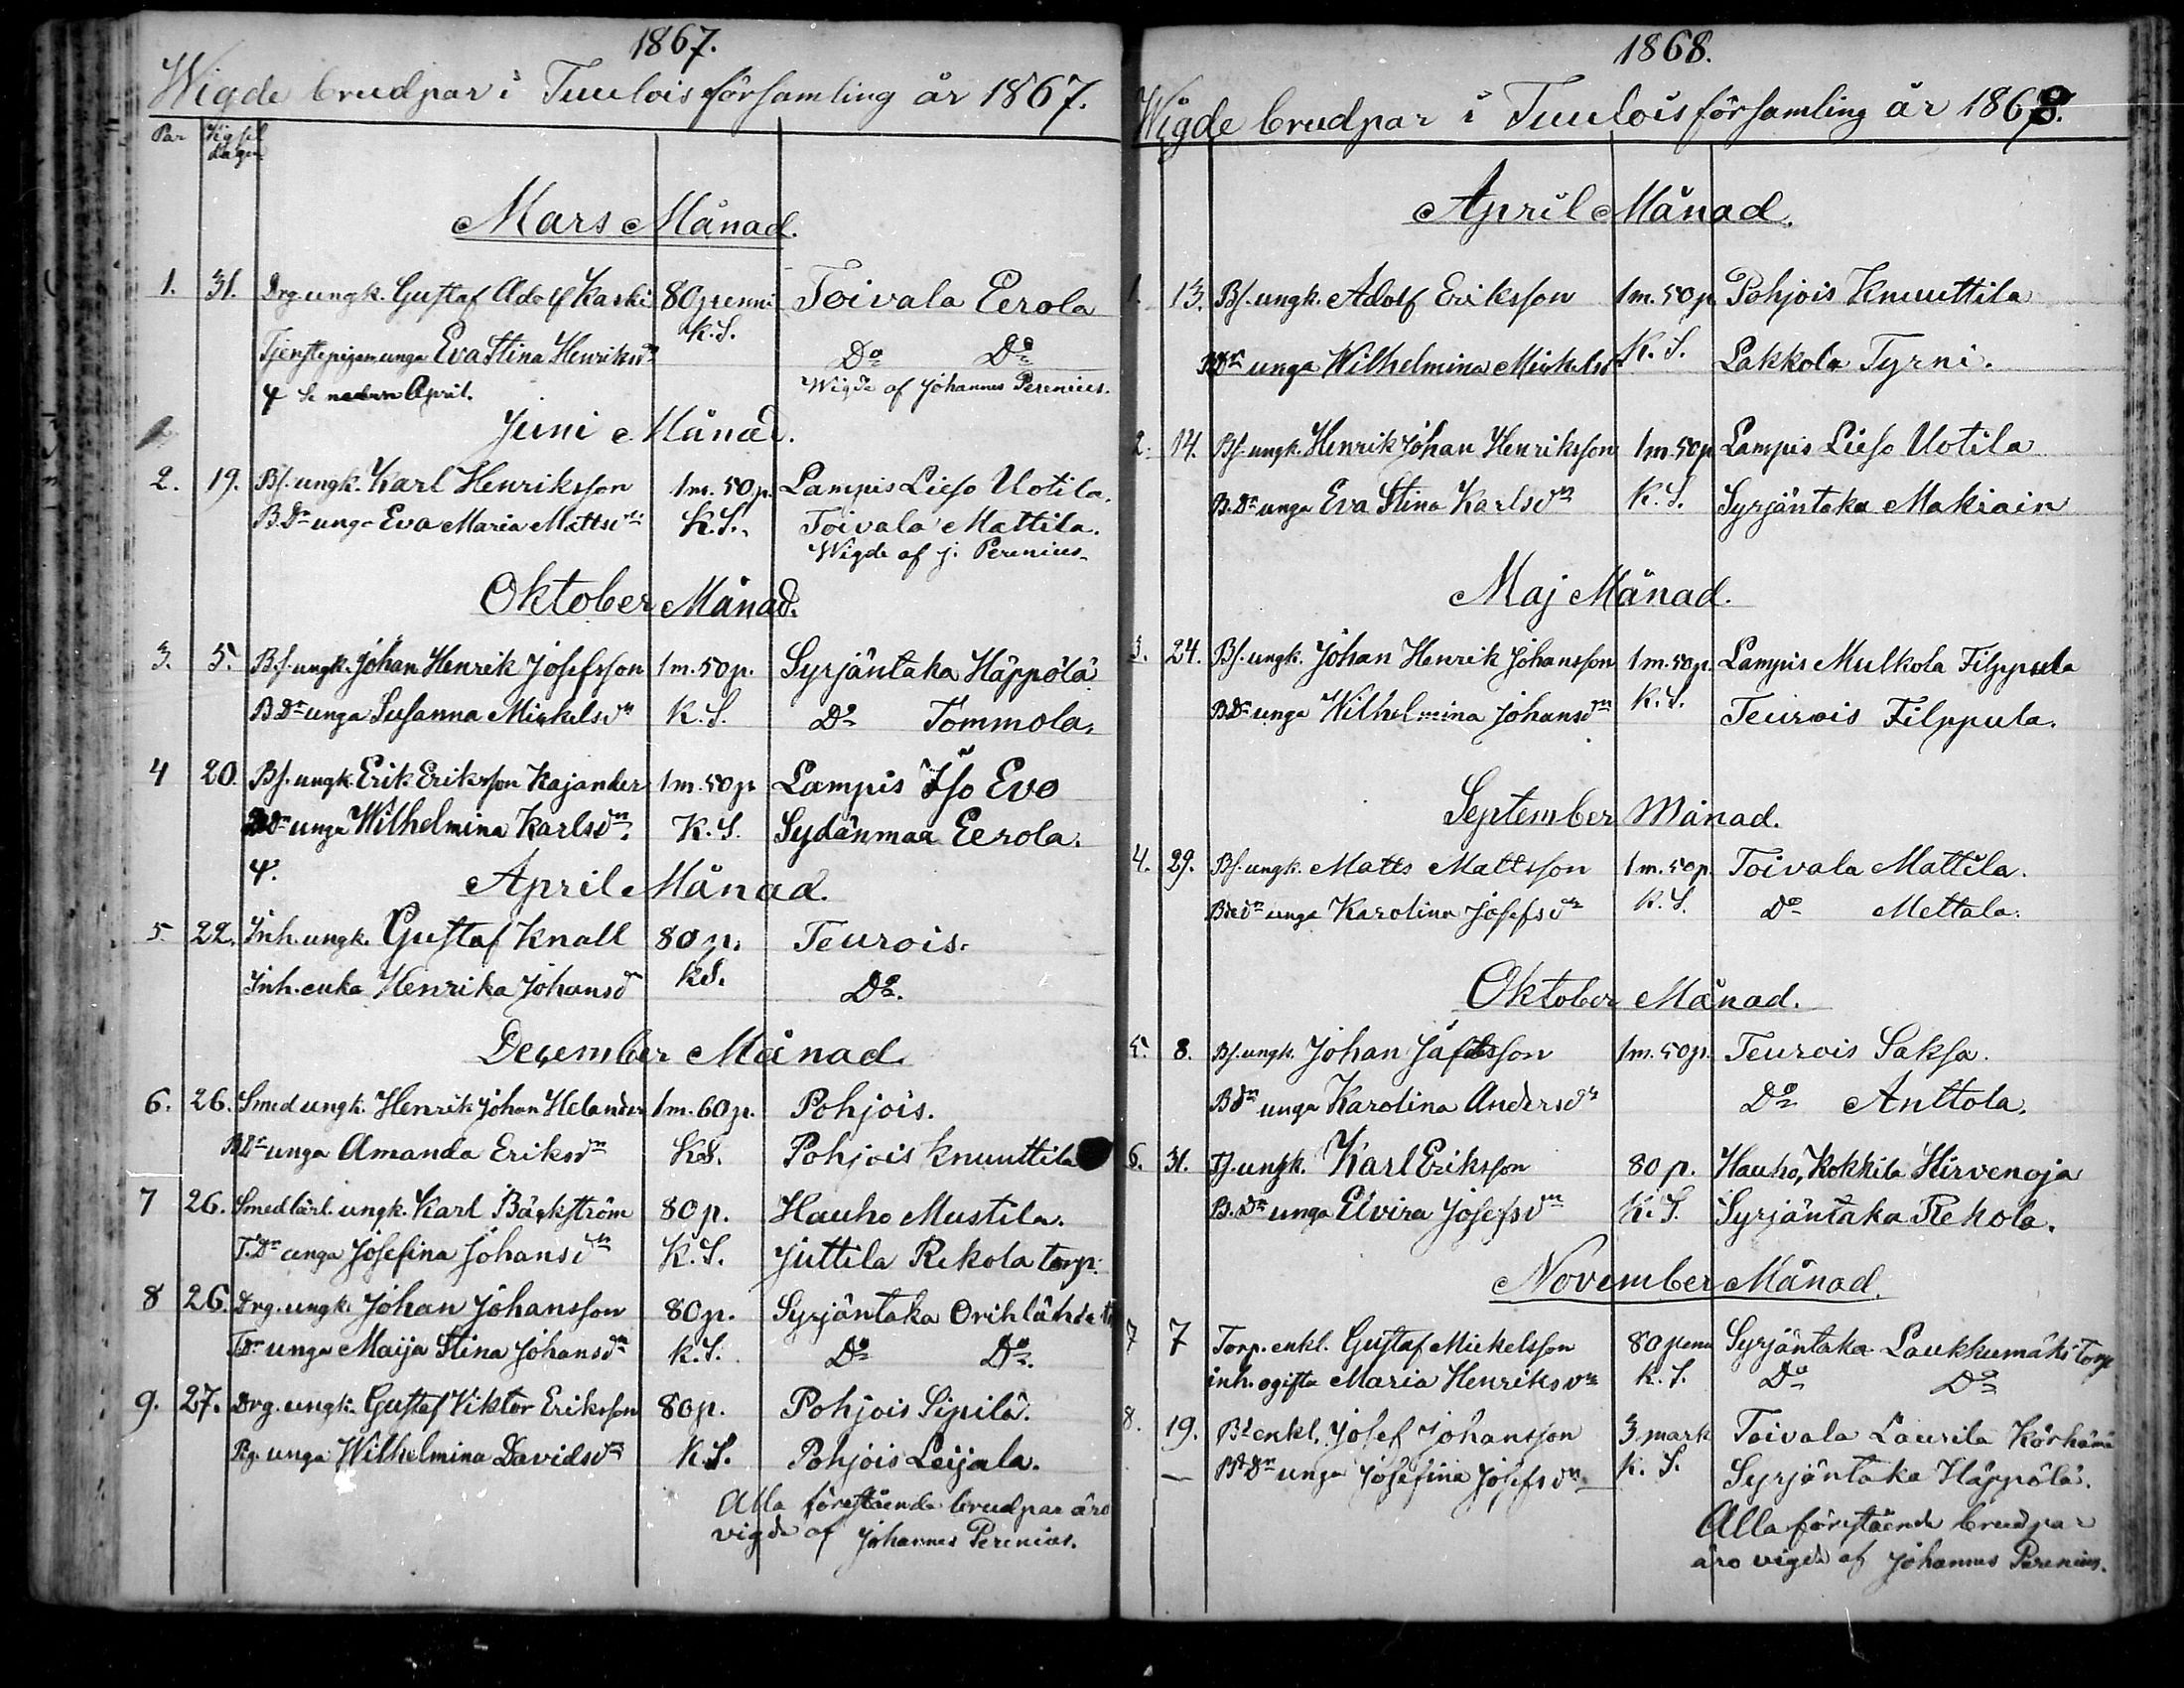 1867.
Wigde brudpar i Tuulois församling år 1867.
Par Vigsel
dagen
Mars Månad.
1. 31. Drg. ungk. Gustaf Adolf Kaski 80 penni Toivala Eerola
Tjenstepigan unga Eva Stina Henriksdr K.S. Do Do
4 Se nedan April. Wigde af Johannes Perenius.
Juni Månad.
2. 19. Bs. ungk. Karl Henriksson 1 m. 50 p. Lampis Lieso Uotila.
B.Dr unga Eva Maria Mattsdr K.S. Toivala Mattila.
Wigde af J. Perenius.
Oktober Månad.
3. 5. B.s. ungk. Johan Henrik Josefsson 1 m. 50 p. Syrjäntaka Häppölä
B Dr unga Susanna Mickelsdr K.S. Do Tommola.
4 20. Bs. ungk. Erik Eriksson Kajander 1 m. 50 p. Lampis Iso Evo
Dr unga Wilhelmina Karlsdr. K.S. Sydänmaa Eerola.
4. April Månad.
5. 22. Inh. ungk. Gustaf Knall 80 p. Teurois.
Inh. enka Henrika Johansd K.S. Do.
December Månad.
6. 26. Smed ungk. Henrik Johan Helander 1 m. 60 p. Pohjois.
B Dr unga Amanda Eriksdr K.S. Pohjois Knuuttila
7 26. Smedlärl. ungk. Karl Bäckström 80 p. Hauho Mustila.
T.Dr unga Josefina Johansdr K.S. Juttila Rekola torp.
8 26. Drg. ungk. Johan Johansson 80 p. Syrjäntaka Orihlähde
T.Dr unga Maija Stina Johansdr K.S. Do Do.
9. 27. Drg. ungk. Gustaf Viktor Eriksson 80 p. Pohjois Sipilä.
Pig. unga Wilhelmina Davidsdr K.S. Pohjois Leijala.
Alla förestående brudpar äro
vigde af Johannes Perenius.
1868.
Wigde brudpar i Tuulois församling år 1868.
April Månad.
1. 13. Bs. ungk. Adolf Eriksson 1 m. 50 p. Pohjois Knuuttila
BDr unga Wilhelmina Mickelsdr K.S. Lakkola Tyrni.
2. 14. Bs. ungk. Henrik Johan Henriksson 1 m. 50 p Lampis Lieso Uotila
B.Dr unga Eva Stina Karlsdr K.S. Syrjäntaka Makiain
Maj Månad.
3. 24. Bs. ungk. Johan Henrik Johansson 1 m. 50 p. Lampis Mulkola Filppula
BDr unga Wilhelmina Johansdr K.S. Teurois Filppula.
September Månad.
4. 29. Bs. ungk. Matts Mattsson 1 m. 50 p. Toivala Mattila.
unga Karolina Josefsdr K.S. Do Mettala.
Oktober Månad.
5. 8. Bs. ungk. Johan 1 m. 50 p. Teurois Saksa.
Bdr unga Karolina Andersdr Do Anttola.
6. 31. ungk. Karl Eriksson 80 p. Hauho, Kokkila Hirvenoja
B.Dr unga Elvira Josefsdr K.S. Syrjäntaka Rekola.
November Månad.
7 7 Torp. enkl. Gustaf Mickelsson 80 penni Syrjäntaka Laukkumäki torp
inh. ogifta Maria Henriksdr K.S. Do Do
8. 19. Bd enkl. Josef Johansson 3 mark Toivala Laurila
Dr unga Josefina Josefsdr K.S. Syrjäntaka Häppölä.
Alla förestående brudpar
äro vigda af Johannes Perenius.